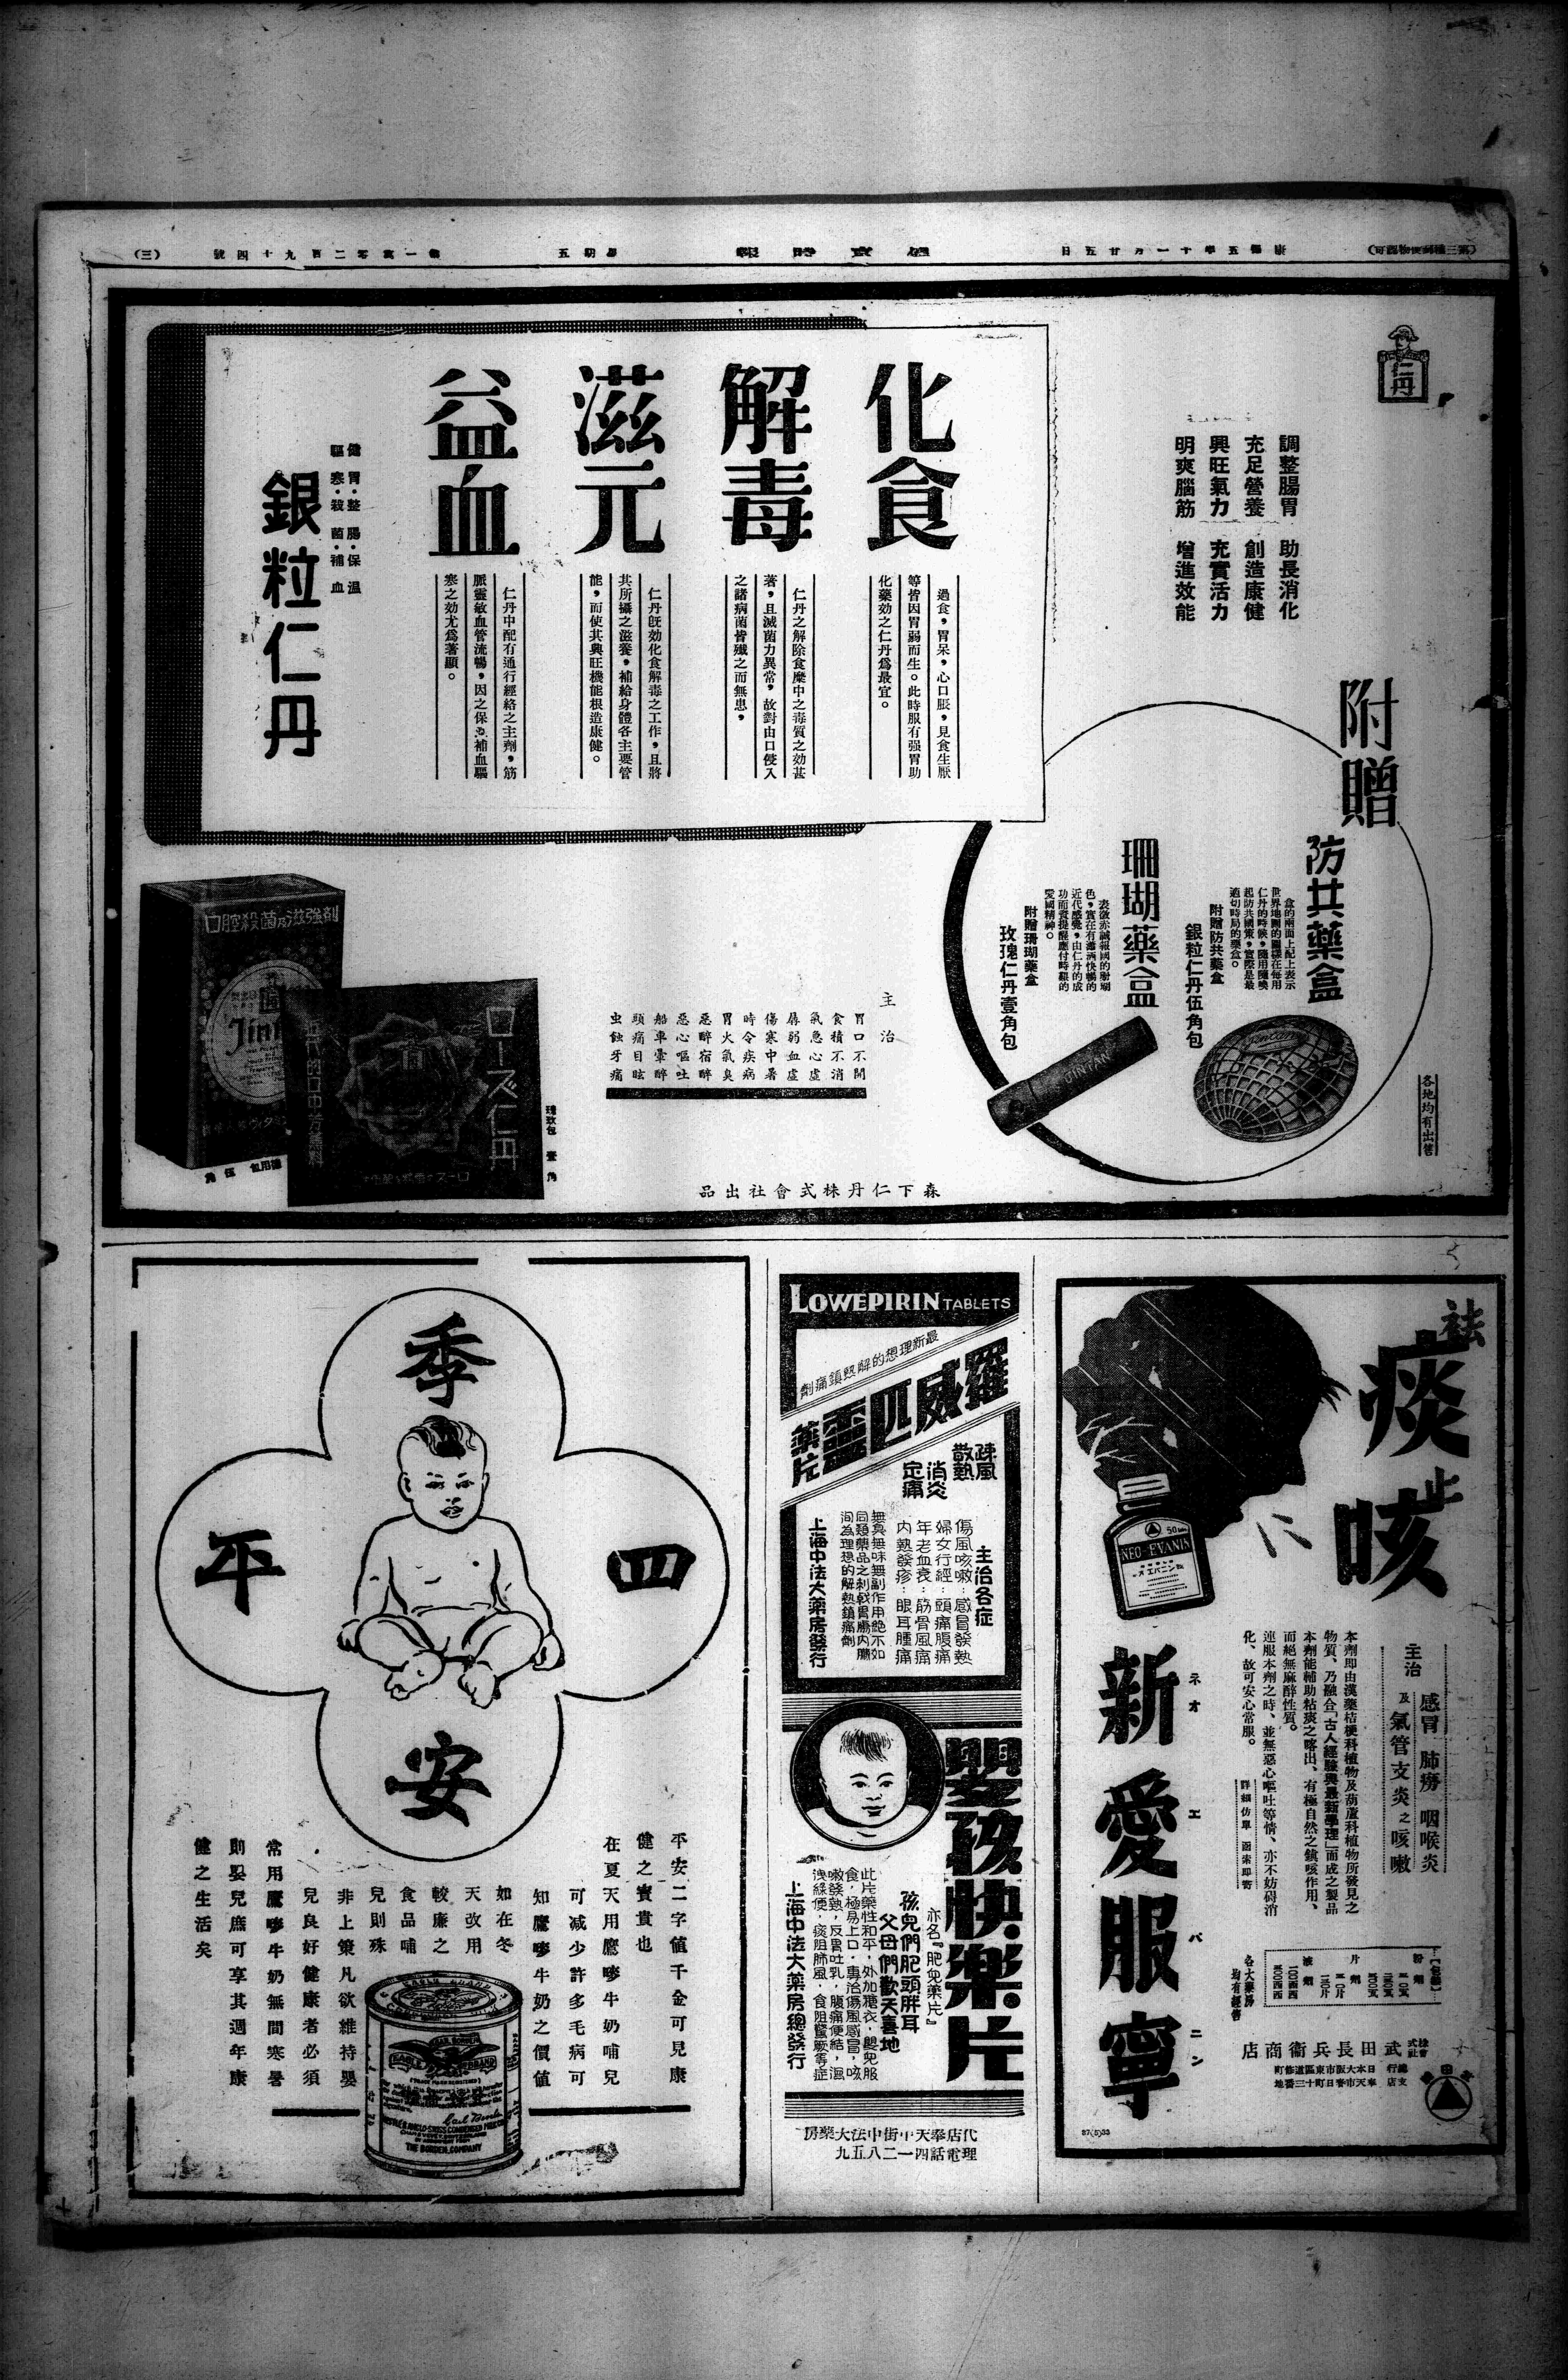 (第三種郵便物認可)
康德五年十一月廿五日
盛京時報
星期五
第一萬零二百九十四號
(三)
仁丹
調整腸胃 助長消化
充足營養 創造康健
興旺氣力 充實活力
明爽腦筋 增進效能
化食
過食，胃呆，心口脹，見食生厭
等皆因胃弱而生。此時服有强胃助
化藥効之仁丹爲最宜。
解毒
仁丹之解除食糜中之毒質之効甚
著，且滅菌力異常，故對由口侵入
之諸病菌皆殲之而無患，
滋元
仁丹旣効化食解毒之工作，且將
其所攝之滋養，補給身體各主要管
能，而使其興旺機能根造康健。
益血
仁丹中配有通行經絡之主劑，筋
脈靈敏血管流暢，因之保溫補血驅
寒之効尤爲著顯。
健胃·整腸·保溫
驅寒·殺菌·補血
銀粒仁丹
附贈
防共藥盒
盒的兩面上配上表示
世界地圖的圖樣在每用
仁丹的時候，隨用隨喚
起防共國策，實際是最
適切時局的藥盒。
附贈防共藥盒
銀粒仁丹伍角包
珊瑚藥盒
表徵赤誠報國的珊瑚
色，實在有瀟洒快暢的
近代感覺，由仁丹的成
功而資提醒應付時艱的
愛國精神。
附贈珊瑚藥盒
玫瑰仁丹壹角包
JINTAN
Jintan
各地均有出售
主治
胃口不開
食積不消
氣急心虛
孱弱血虛
傷寒中暑
時令疾病
胃火氣臭
惡醉宿醉
惡心嘔吐
船車暈醉
頭痛目眩
虫蝕牙痛
口腔殺菌及滋強劑
Jintan
ローズ仁丹
近代的口中芳薰料
玫瑰包 壹角
德用包 伍角
森下仁丹株式會社出品
祛痰
止咳
に
NEO-EVANIN
ネオエバニン錠
新愛服寧
ネオエバニン
主治 感冒 肺癆 咽喉炎
及氣管支炎之咳嗽
本劑即由漢藥桔梗科植物及葫蘆科植物所發見之
物質、乃融合「古人經驗與最新學理」而成之製品
本劑能輔助粘痰之喀出、有極自然之鎮咳作用、
而絕無麻醉性質。
連服本劑之時、並無惡心嘔吐等情、亦不妨碍消
化、故可安心常服。
詳細仿單 函索即寄
【包裝】
粉劑
片劑
液劑
各大藥房
均有經售
株式會社武田長兵衞商店
總行 日本大阪市東區道修町
支店 奉天市春日町十三番地
37(5)33
LOWEPIRIN TABLETS
最新理想的解熱鎮痛劑
羅威匹靈藥片
疎風
散熱
消炎
定痛
主治各症
傷風咳嗽：感冒發熱
婦女行經：頭痛腹痛
年老血衰：筋骨風痛
內熱發疹：眼耳腫痛
無臭無味無副作用絕不如
同類藥品之刺戟胃腸內臟
洵為理想的解熱鎮痛劑
上海中法大藥房發行
嬰孩快樂片
亦名『肥兒藥片』
孩兒們肥頭胖耳
父母們歡天喜地
此片藥性和平，外加糖衣，嬰兒服
食，極易上口，專治傷風感冒，咳
嗽發熱，反胃吐乳，腹痛便結，濕
洩綠便，痰阻肺風，食阻驚厥等症
上海中法大藥房總發行
代理店奉天中街中法大藥房
電話四一二八五九
四季平安
平安二字值千金可見康
健之寶貴也
在夏天用鷹嘜牛奶哺兒
可减少許多毛病可
知鷹嘜牛奶之價值
如在冬
天改用
較廉之
食品哺
兒則殊
非上策凡欲維持嬰
兒良好健康者必須
常用鷹嘜牛奶無間寒暑
則嬰兒庶可享其週年康
健之生活矣
GAIL BORDEN
EAGLE BRAND
Gail Borden
THE BORDEN COMPANY